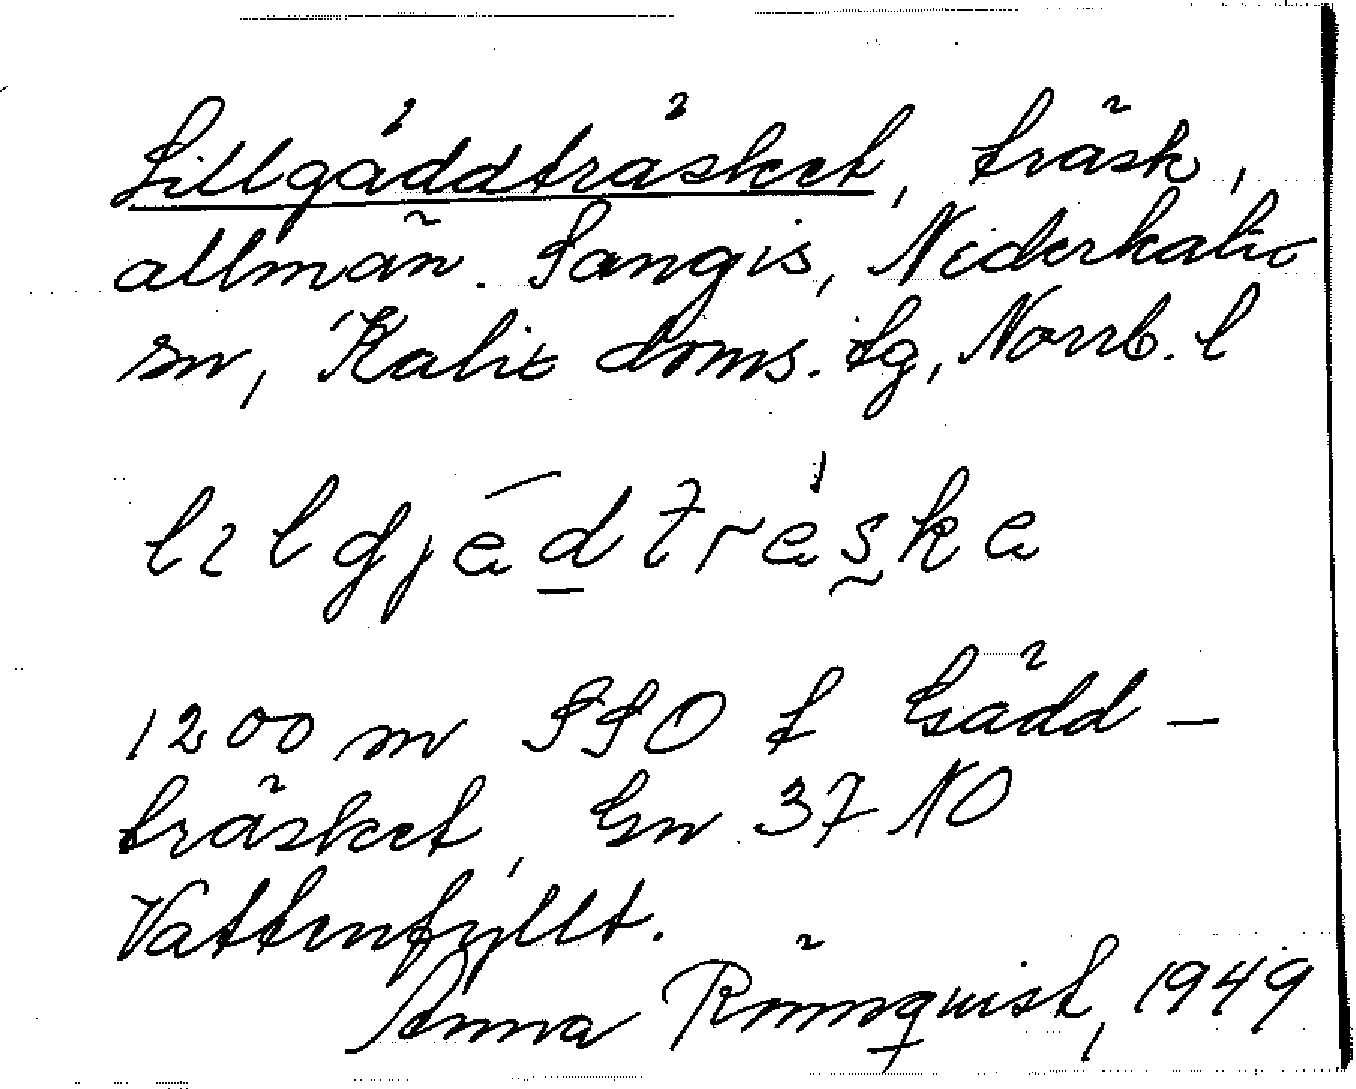 Lillgäddträsket, träsk,
allmän. Sangis, Nederkalix
sn, Kalix doms. tg, Norrb. l
lılgjædtræ̀ska
1200 m SSO f Gädd-
träsket, Gn 37 NO
Vattenfyllt.
Anna Rönnquist, 1949